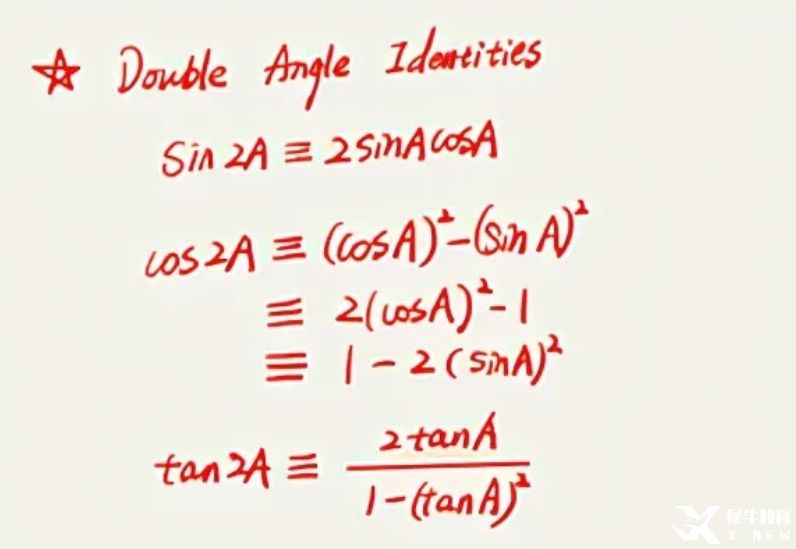 ☆ Double Angle Identities
Sin 2A ≡ 2 sinA cosA
cos 2A ≡ (cosA)² - (sin A)²
≡ 2(cosA)² - 1
≡ 1 - 2(sinA)²
tan 2A ≡ 2 tanA / 1 - (tanA)²
犀牛教育
X-NEW